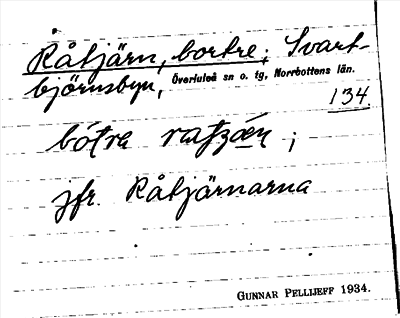 Råtjärn, bortre; Svart-
björnsbyn, Överluleå sn o. tg, Norrbottens län.
134
bótre ratzæn;
jfr. Råtjärnarna
GUNNAR PELLIJEFF 1934.